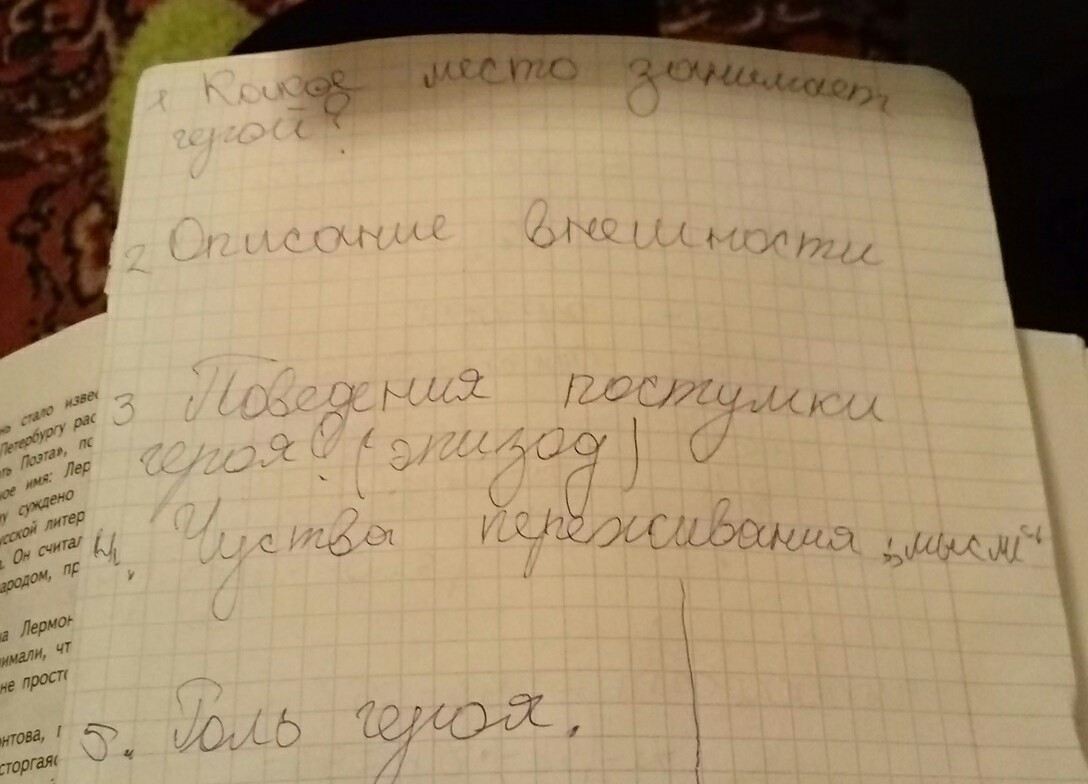 1 Какое место занимает
герой?
2 Описание внешности
3 Поведения поступки
героя? (эпизод)
4. Чуства переживания „мысли“
5. Роль героя.
стало извес
Петербургу рас
ть Поэта», по
ое имя: Лер
у суждено
усской литер
. Он считал
ародом, пр
а Лермон
имали, чт
не просто
онтова,
сторгаяс